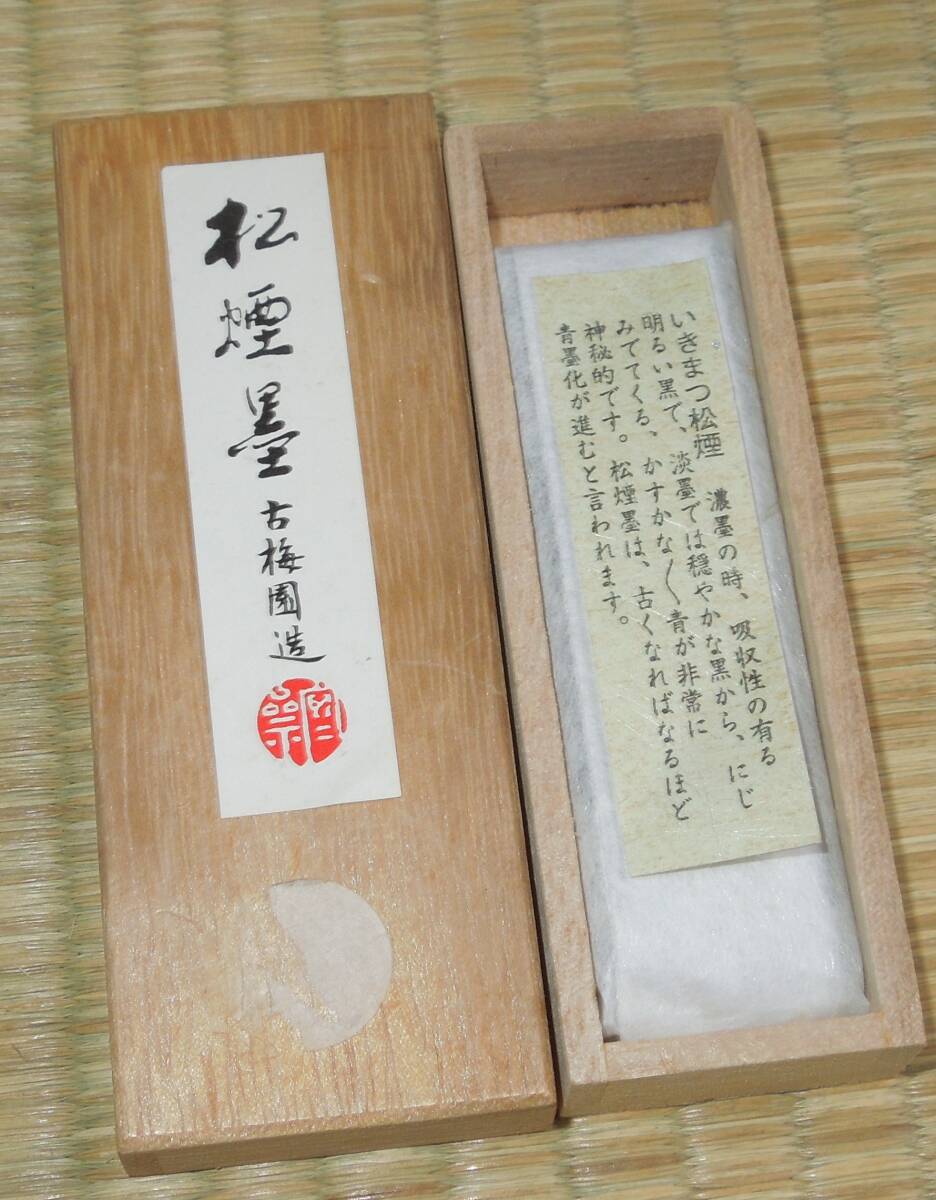 松煙墨 古梅園造
いきまつ松煙 濃墨の時、吸収性の有る
明るい黒で、淡墨では穏やかな黒から、にじ
みでてくる、かすかな〳〵青が非常に
神秘的です。松煙墨は、古くなればなるほど
青墨化が進むと言われます。